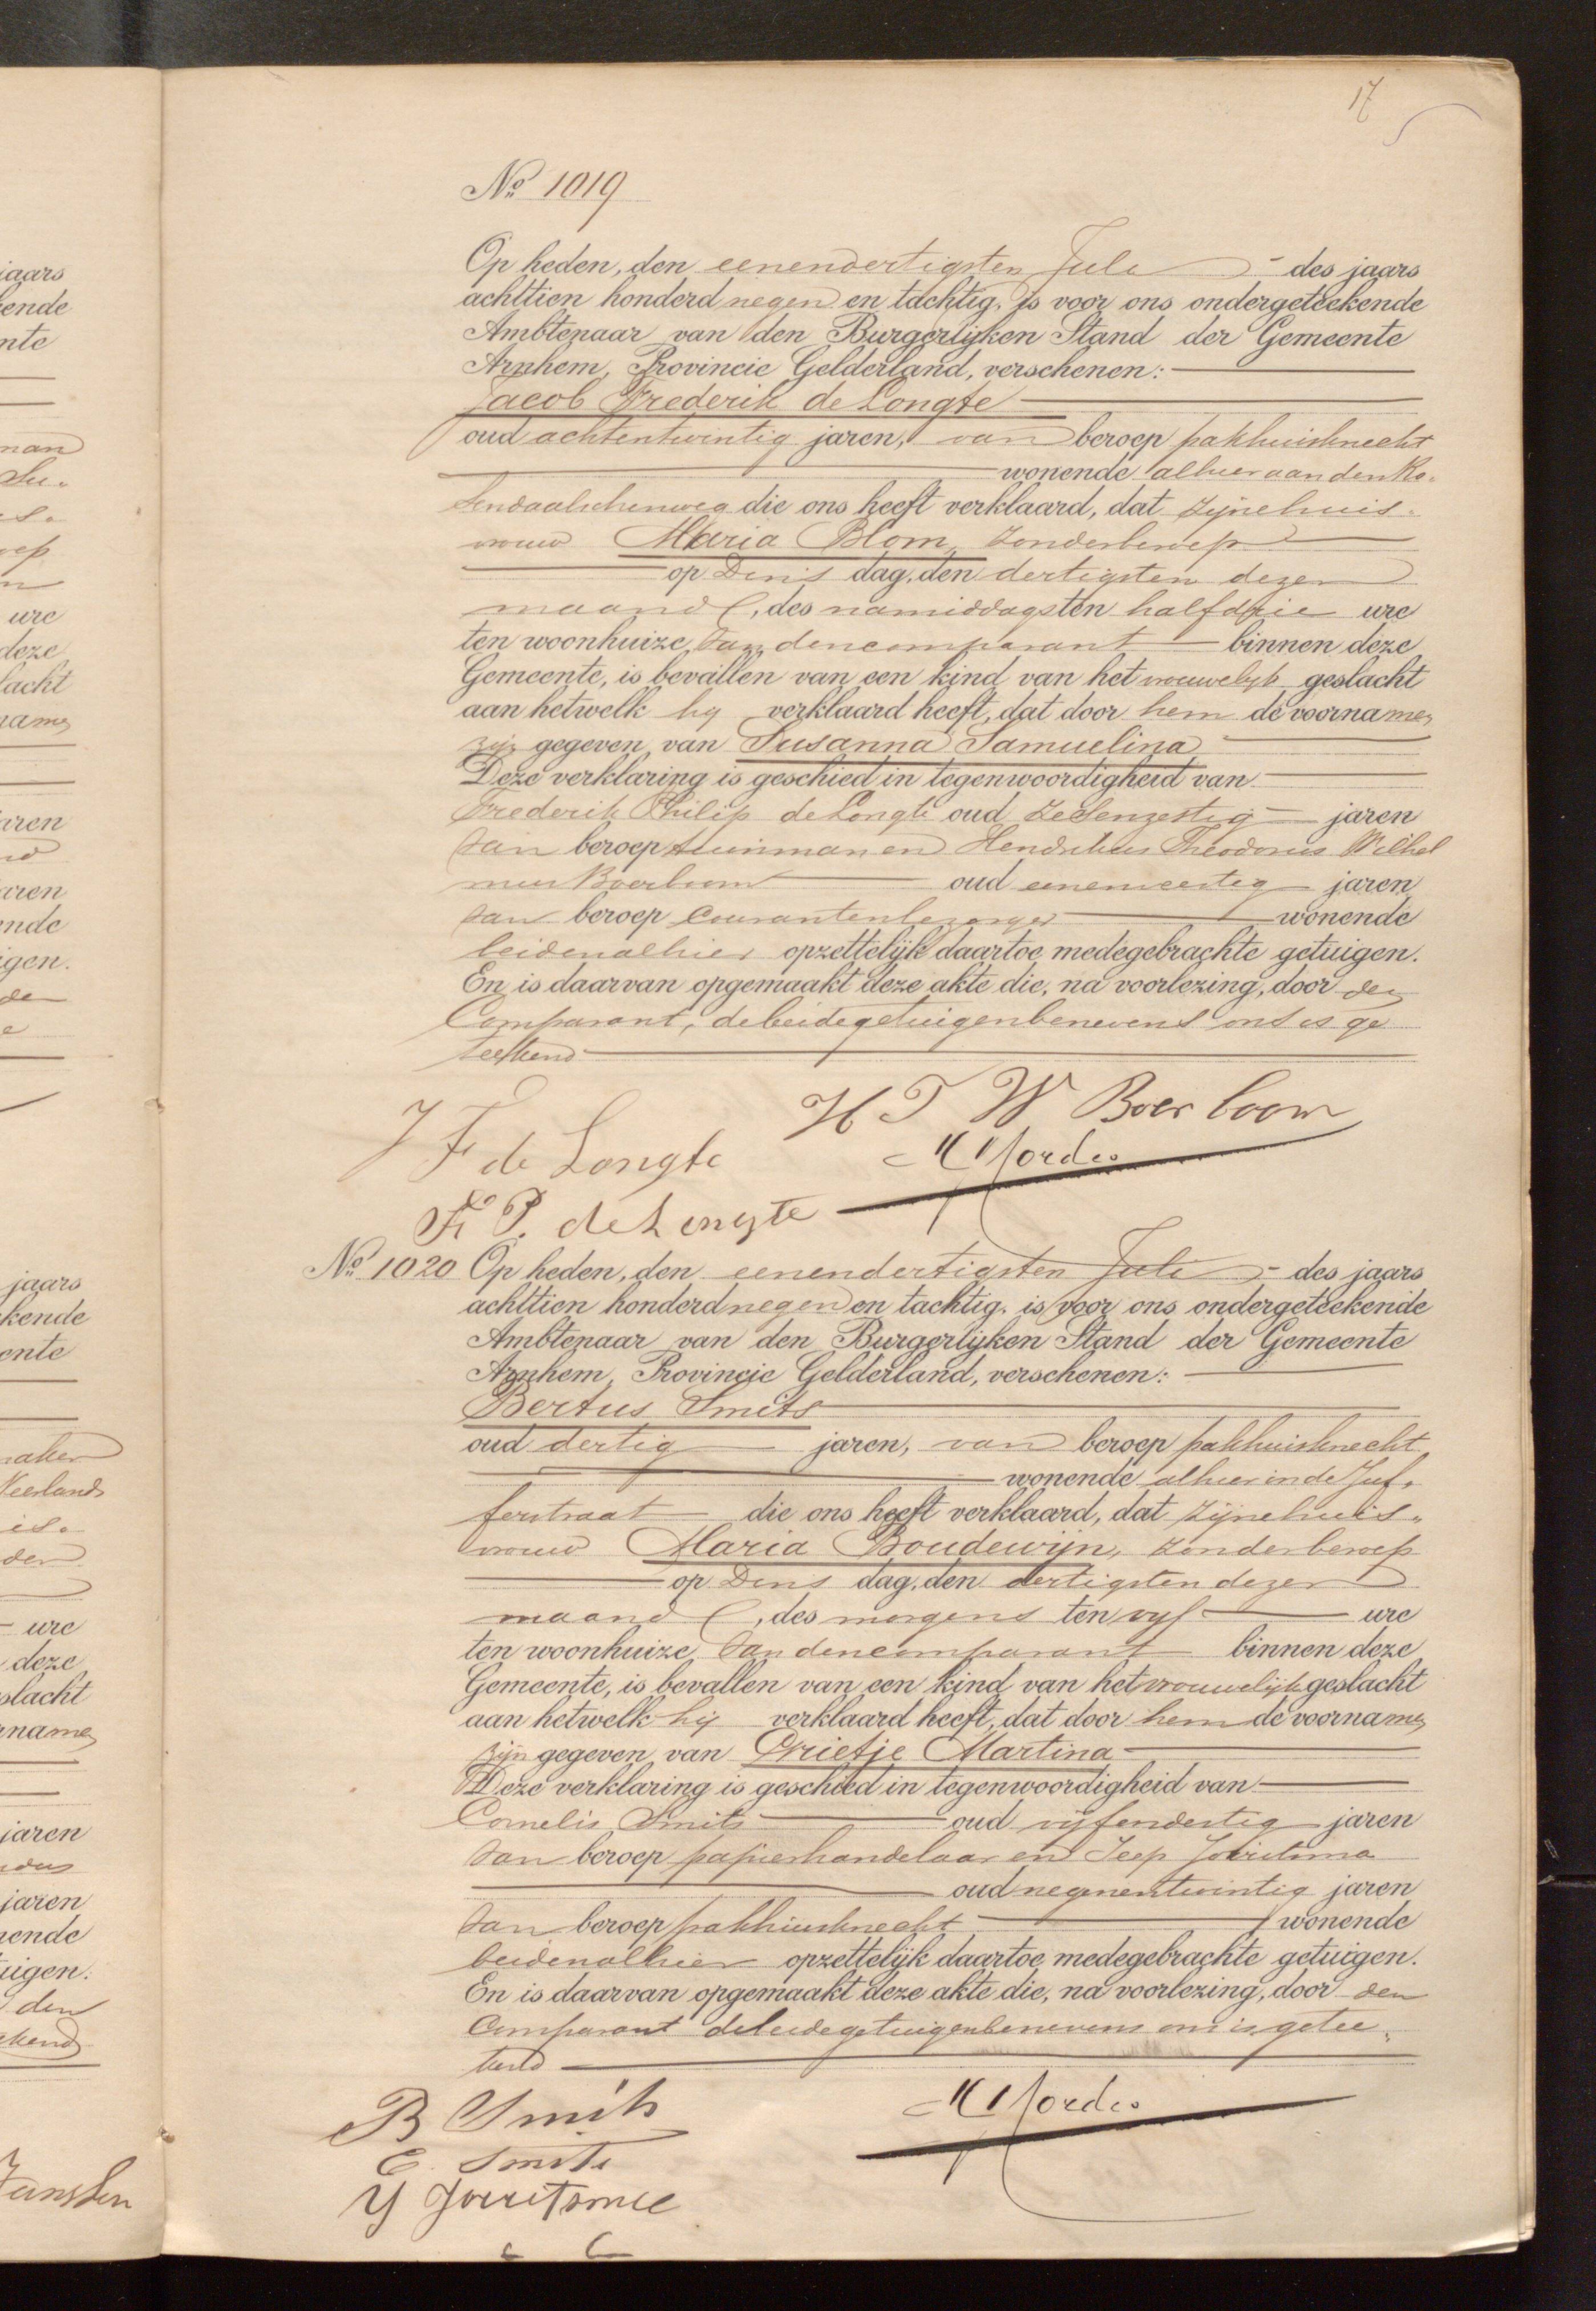 17
No 1019
Op heden, den eenendertigsten Juli des jaars
achttien honderd negen en tachtig, is voor ons ondergeteekende
Ambtenaar van den Burgerlijken Stand der Gemeente
Arnhem, Provincie Gelderland, verschenen:
Jacob Frederik de Longte
oud achtentwintig jaren, van beroep pakhuisknecht
wonende alhier aan den Ro-
sendaalschenweg die ons heeft verklaard, dat zijne huis-
vrouw Maria Blom, zonder beroep
op Dins dag, den dertigsten dezer
maand, des namiddags ten half drie ure
ten woonhuize van den comparant binnen deze
Gemeente, is bevallen van een kind van het vrouwelijk geslacht
aan hetwelk hij verklaard heeft, dat door hem de voornamen
zijn gegeven van Susanna Samuelina
Deze verklaring is geschied in tegenwoordigheid van
Frederik Philip de Longte oud zesenzestig jaren
van beroep tuinman en Hendrikus Theodorus Wilhel
mus Boerboom oud eenenveertig jaren
van beroep courantenbezorger wonende
beiden alhier opzettelijk daartoe medegebrachte getuigen.
En is daarvan opgemaakt deze akte die, na voorlezing, door den
Comparant, de beide getuigen benevens ons is ge
teekend
H T W Boerboom
J F de Longte
F P. de Longte
No 1020 Op heden, den eenendertigsten Juli des jaars
achttien honderd negen en tachtig, is voor ons ondergeteekende
Ambtenaar van den Burgerlijken Stand der Gemeente
Arnhem, Provincie Gelderland, verschenen:
Bertus Smits
oud dertig jaren, van beroep pakhuisknecht
wonende alhier in de Juf-
ferstraat die ons heeft verklaard, dat zijne huis-
vrouw Maria Boudewijn, zonder beroep
op Dins dag, den dertigsten dezer
maand, des morgens ten vijf ure
ten woonhuize van den comparant binnen deze
Gemeente, is bevallen van een kind van het vrouwelijk geslacht
aan hetwelk hij verklaard heeft, dat door hem de voornamen
zijn gegeven van Drietje Martina
Deze verklaring is geschied in tegenwoordigheid van
Cornelis Smits oud vijfendertig jaren
van beroep papierhandelaar en Jeep Jorritsma
oud negenentwintig jaren
van beroep pakhuisknecht wonende
beiden alhier opzettelijk daartoe medegebrachte getuigen.
En is daarvan opgemaakt deze akte die, na voorlezing, door den
Comparant de beide getuigen benevens ons is getee-
kend
B Smits
C. Smits
J Jorritsma